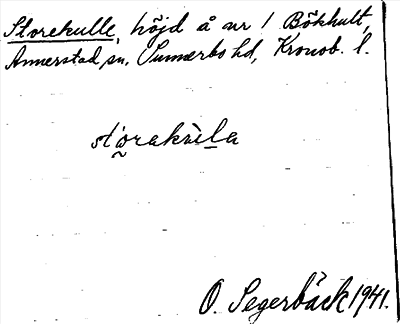 Storekulle, höjd å nr 1 Bökhult,
Annerstad sn, Sunnerbo hd, Kronob. l.
storakùla
O. Segerbäck 1941.